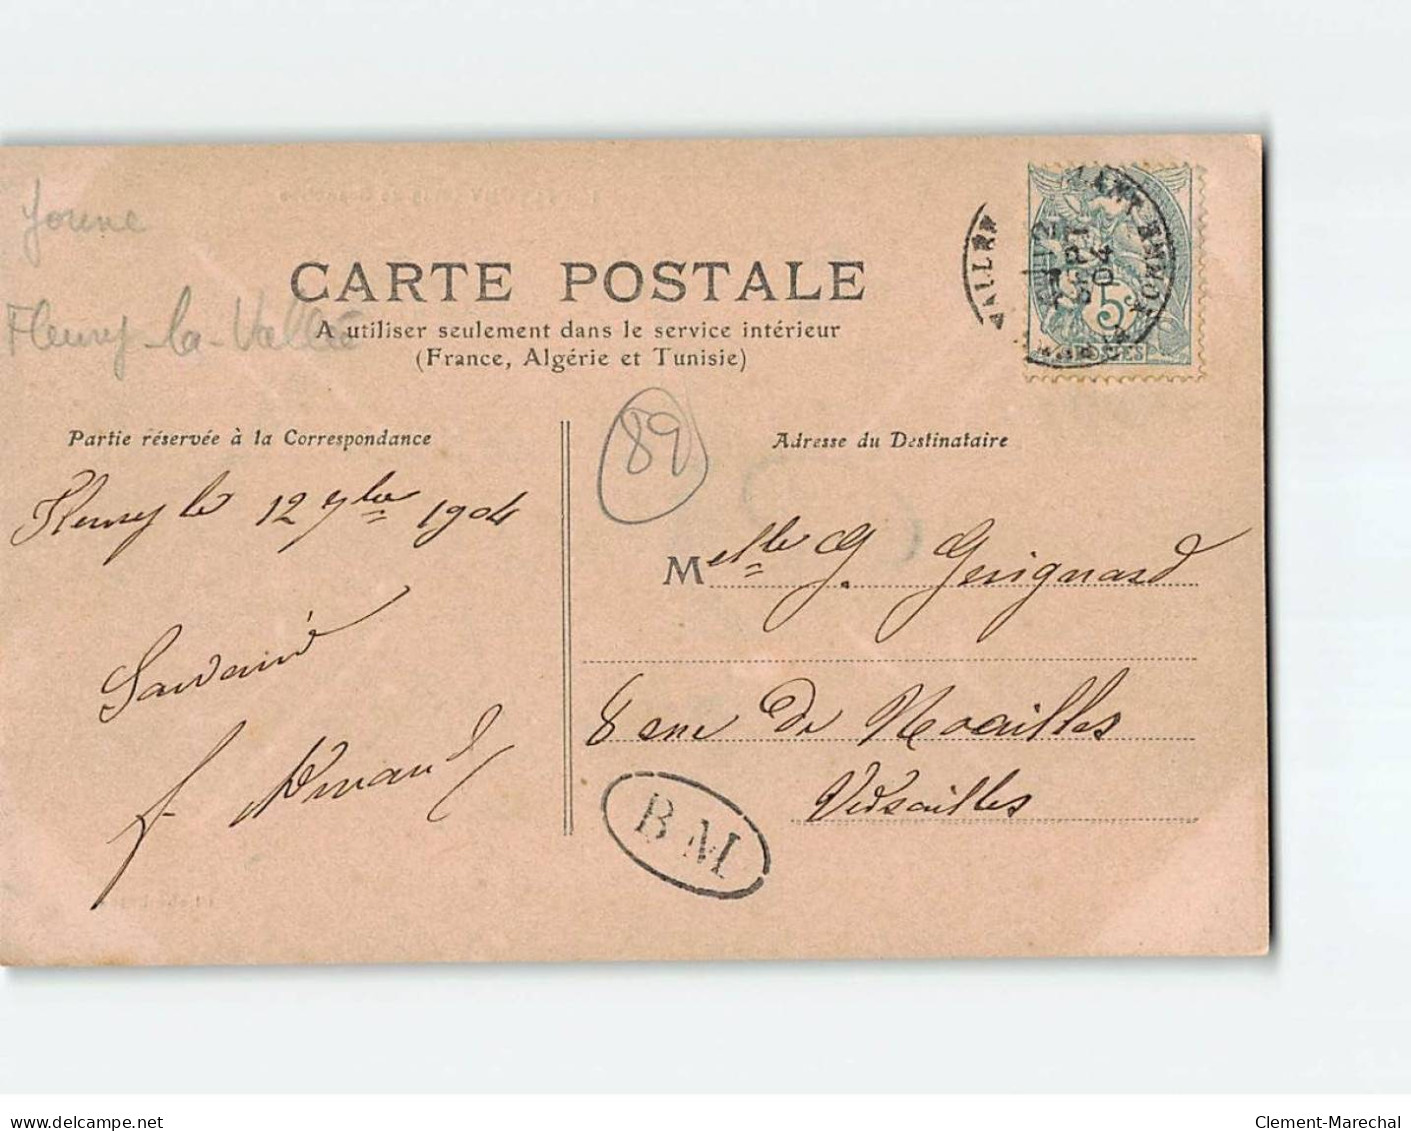 Yonne
Fleury-la-Vallée
CARTE POSTALE
A utiliser seulement dans le service intérieur
(France, Algérie et Tunisie)
5c
POSTES
SEPT
04
Partie réservée à la Correspondance
89
Adresse du Destinataire
Fleury le 12 7bre 1904
Melle G. Guignard
8 rue de Noailles
Versailles
B M
delcampe.net
Clement-Marechal